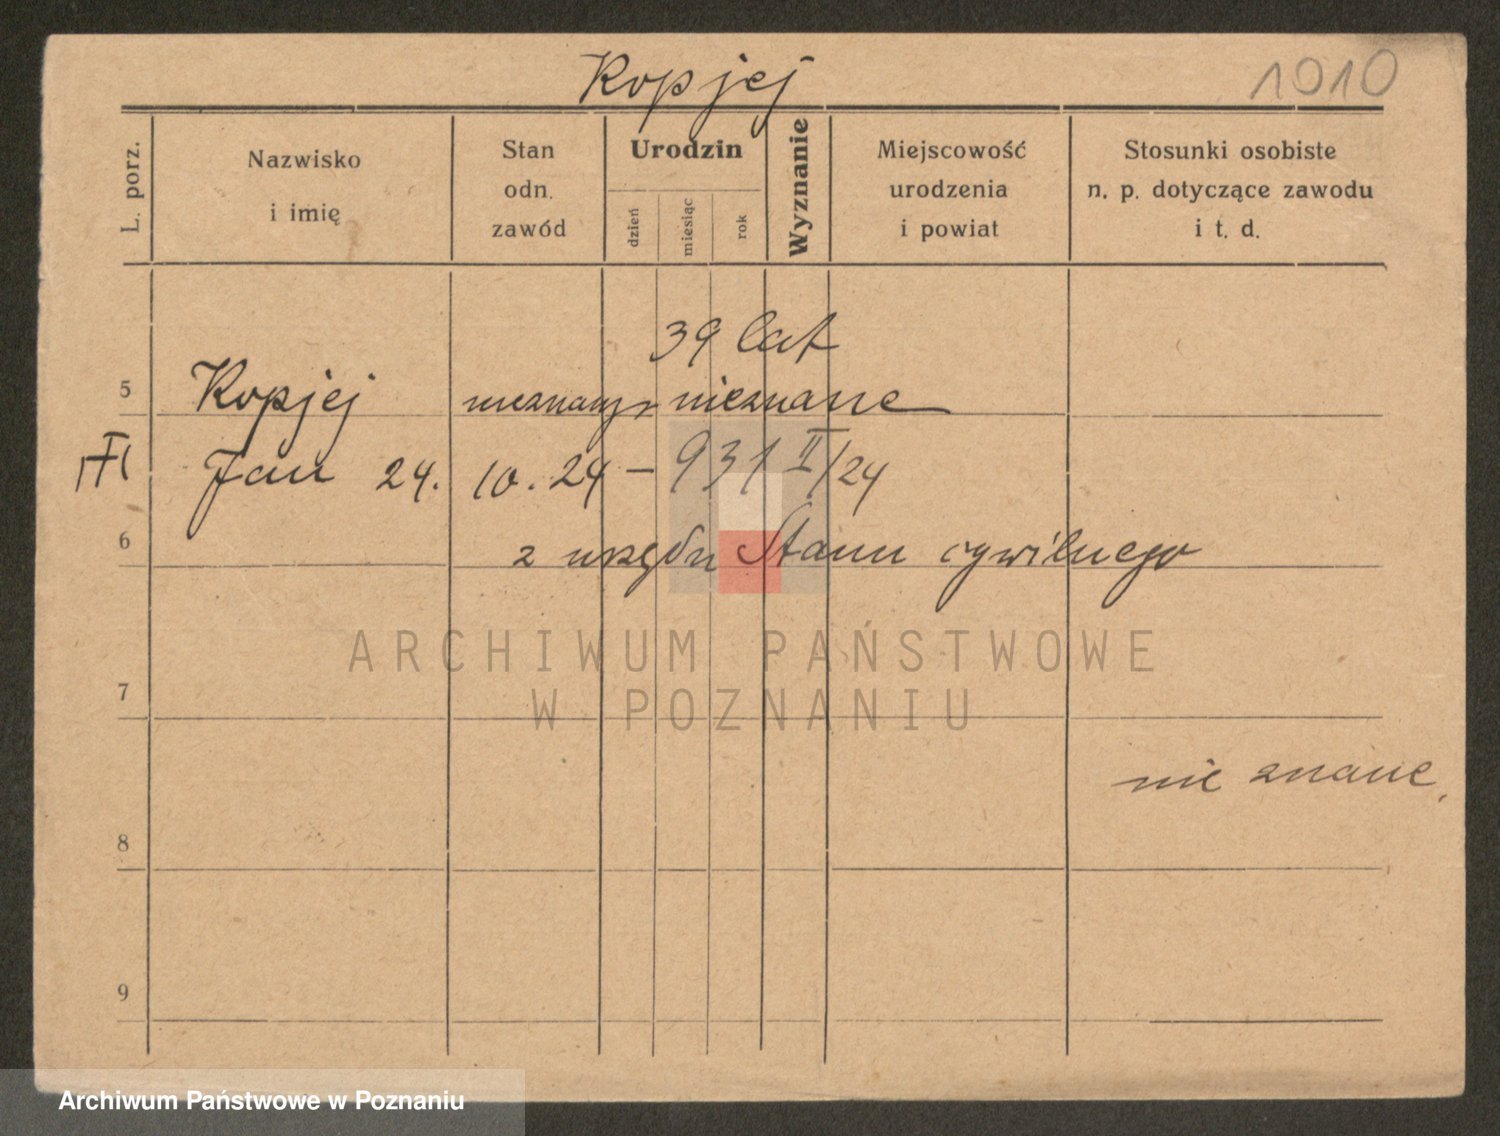 Kopjej
1010
L. porz.
Nazwisko
i imię
Stan
odn.
zawód
Urodzin
dzień
miesiąc
rok
Wyznanie
Miejscowość
urodzenia
i powiat
Stosunki osobiste
n. p. dotyczące zawodu
i t. d.
39 lat
5 Kopjej nieznany nieznane
Jan 24. 10. 24 – 931 II/24
6 z urzędu Stanu cywilnego
ARCHIWUM PAŃSTWOWE
W POZNANIU
7
nie znane.
8
9
Archiwum Państwowe w Poznaniu